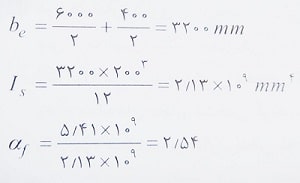 b_e = ۶۰۰۰/۲ + ۴۰۰/۲ = ۳۲۰۰ mm
I_s = ۳۲۰۰×۲۰۰^۳/۱۲ = ۲/۱۳×۱۰^۹ mm^۴
α_f = ۵/۴۱×۱۰^۹/۲/۱۳×۱۰^۹ = ۲/۵۴